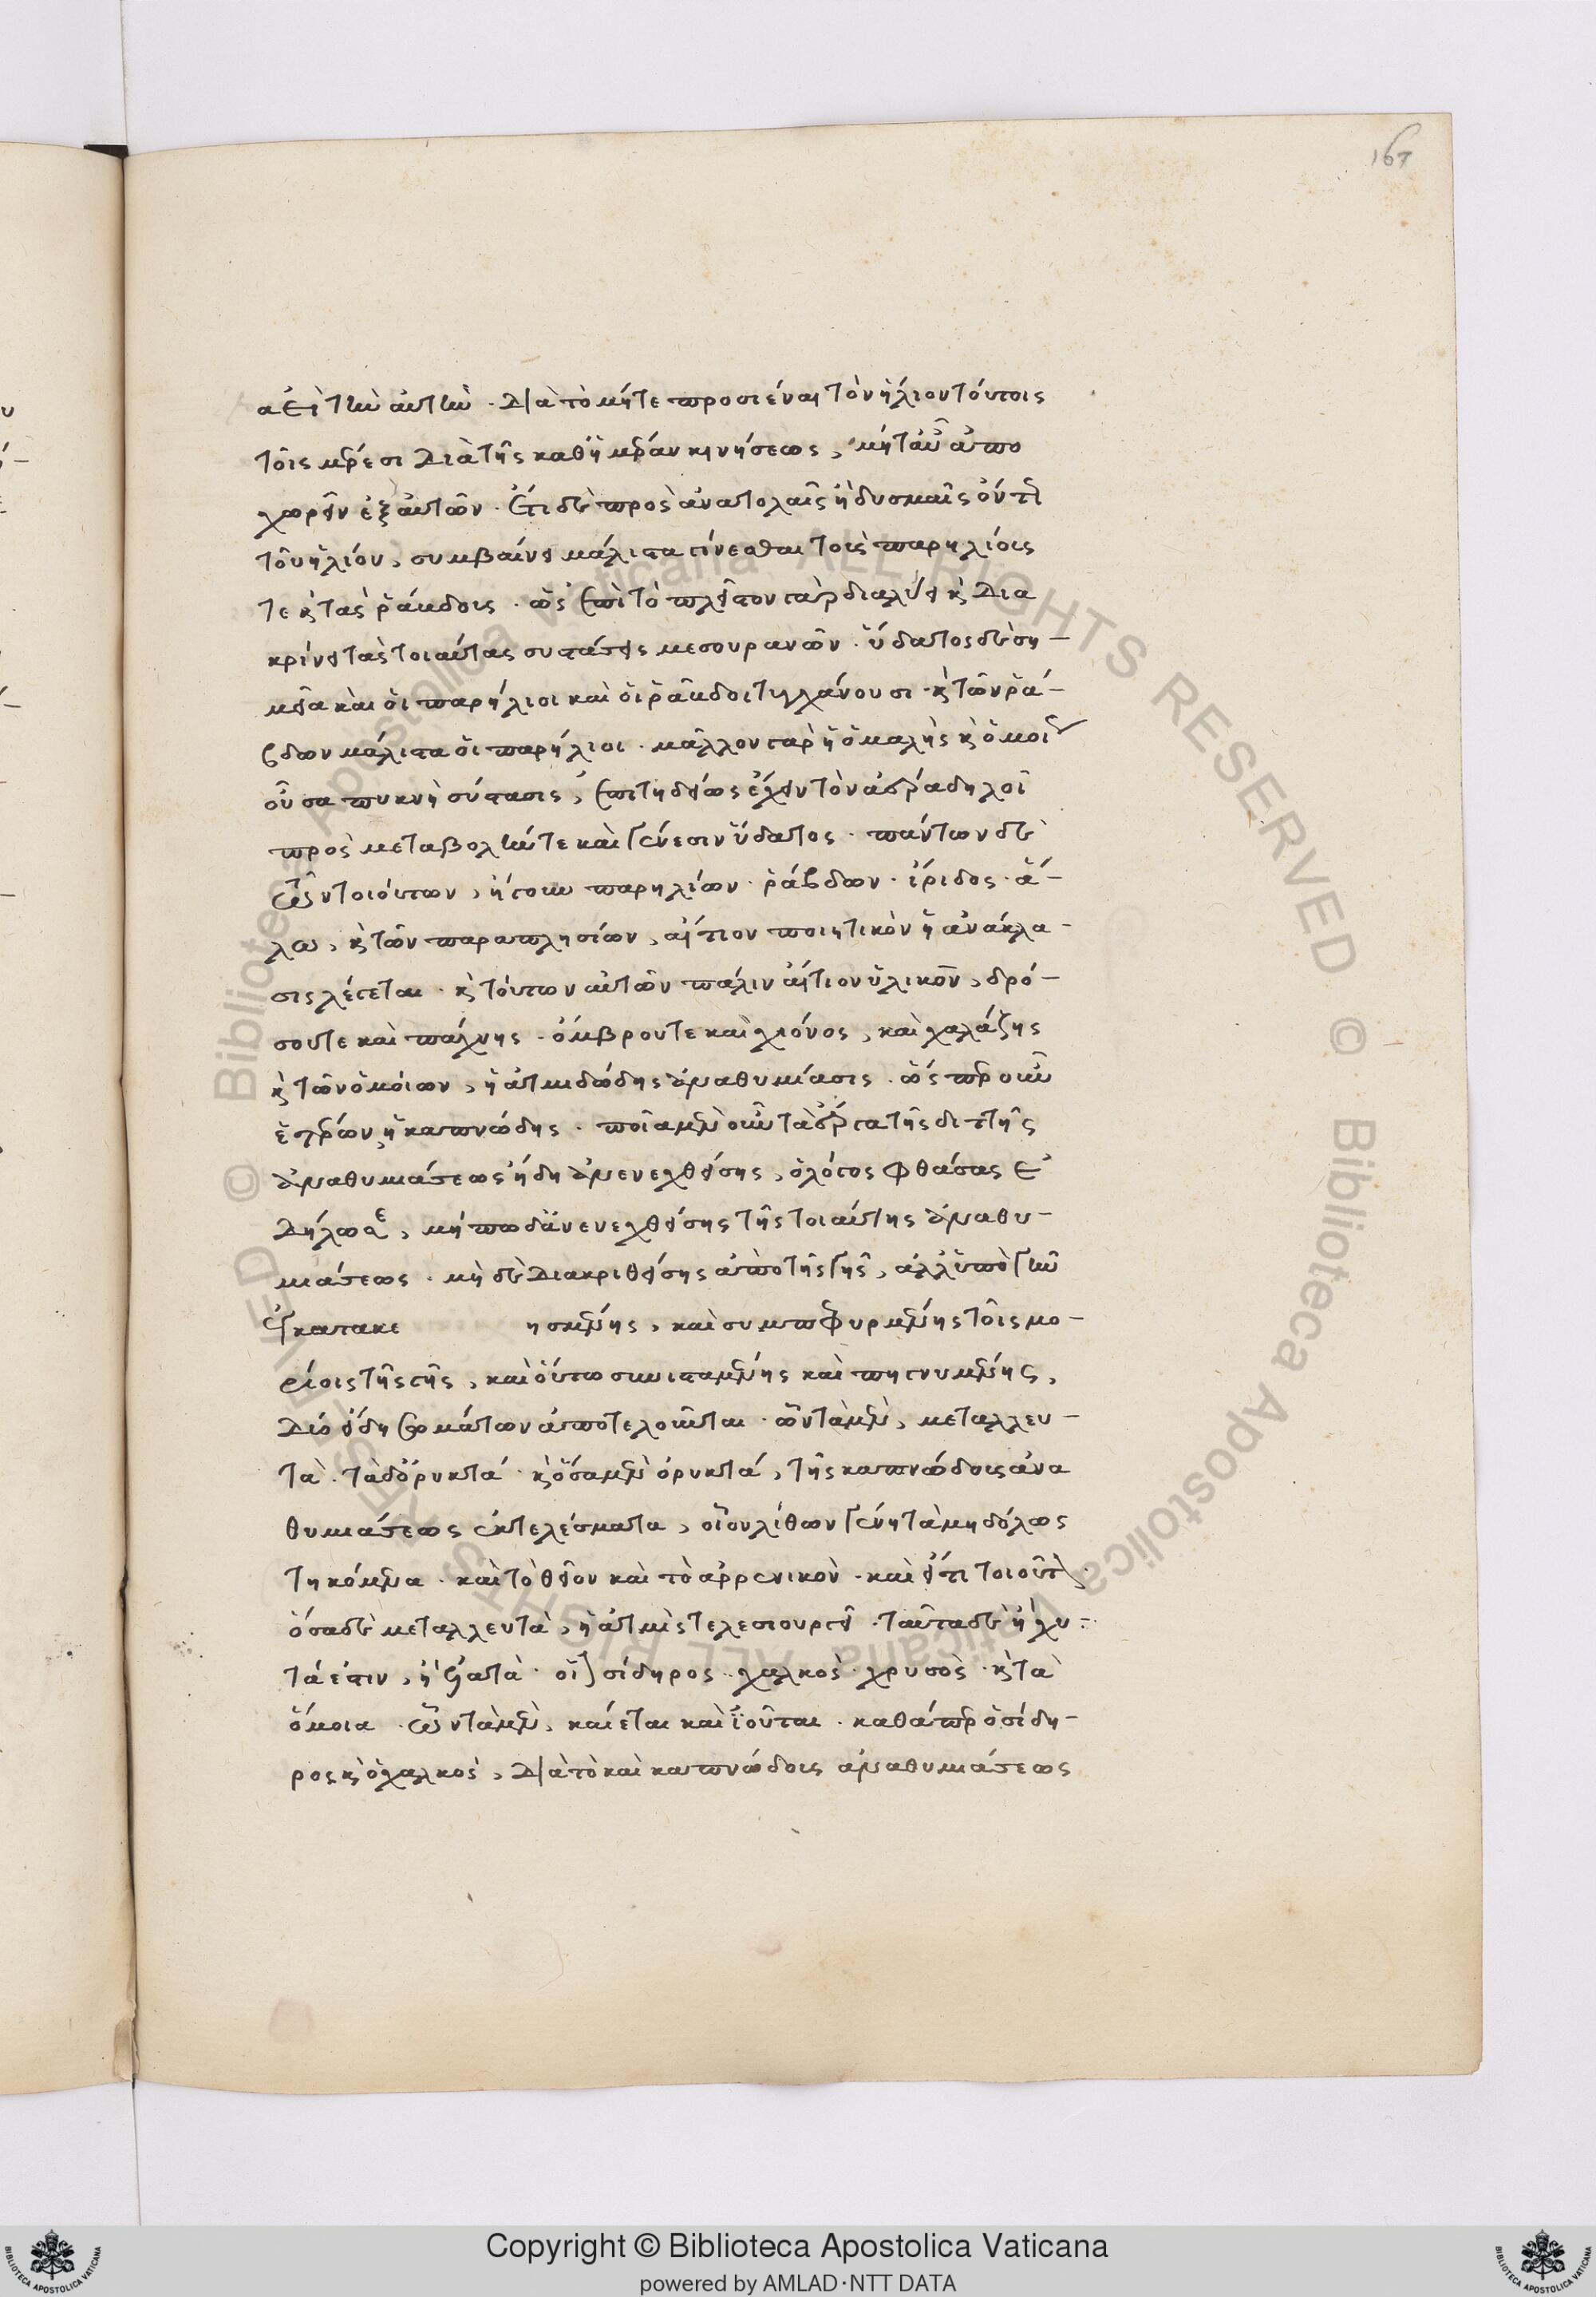 167
αεὶ τὴν αὐτὴν· διὰ τὸ μήτε προσιέναι τὸν ἥλιον τούτοις
τοῖς μέρεσι διὰ τῆς καθημέραν κινήσεως, μήτ' αὖ ἀπο
χωρεῖν ἐξ αὐτῶν· ἔτι δὲ πρὸς ἀνατολαῖς ἢ δυσμαῖς ὄντος
τοῦ ἡλίου, συμβαίνει μάλιστα γίνεσθαι τοὺς παρηλίους
τε κ τὰς ῥάβδους· ὡς ἐπὶ τὸ πλεῖστον γὰρ διαλύει κ δια
κρίνει τὰς τοιαύτας συστάσεις μεσουρανῶν· ὕδατος δὲ ση-
μεῖα καὶ οἱ παρήλιοι καὶ οἱ ῥάβδοι τυγχάνουσι· κ τῶν ῥά-
βδων μάλιστα οἱ παρήλιοι· μᾶλλον γὰρ ἡ ὁμαλὴς κ ὁμοίως
οὖσα πυκνὴ σύστασις, ἐπιτηδείως ἔχειν τὸν ἀέρα δηλοῖ
πρὸς μεταβολήν τε καὶ γένεσιν ὕδατος· πάντων δὲ
τῶν τοιούτων, ἤγουν παρηλίων· ῥάβδων· ἴριδος· ἅ-
λω, κ τῶν παραπλησίων, αἴτιον ποιητικὸν ἡ ἀνάκλα-
σις λέγεται· κ τούτων αὐτῶν πάλιν αἴτιον ὑλικὸν, δρό-
σου τε καὶ πάχνης· ὄμβρου τε καὶ χιόνος, καὶ χαλάζης
κ τῶν ὁμοίων, ἡ ἀτμιδώδης ἀναθυμίασις· ὥσπερ οὖν
ἑτέρων, ἡ καπνώδης· ποῖα μὲν οὖν τὰ ἔργα τῆς διττῆς
ἀναθυμιάσεως ἤδη ἀνενεχθείσης, ὁ λόγος φθάσας ἐ
δήλωσε, μήπω δ' ἀνενεχθείσης τῆς τοιαύτης ἀναθυ-
μιάσεως· μὴ δὲ διακριθείσης ἀπὸ τῆς γῆς, ἀλλ' ὑπὸ γῆν
ἐγκατακε ησμένης, καὶ συμπεφυρμένης τοῖς μο-
ρίοις τῆς γῆς, καὶ οὕτω συνισταμένης καὶ πηγνυμένης,
δύο εἴδη σωμάτων ἀποτελοῦνται· ὧν τὰ μὲν, μεταλλευ-
τὰ· τὰ δ' ὀρυκτά· κ ὅσα μὲν ὀρυκτά, τῆς καπνώδους ἀνα
θυμιάσεως ἀποτελέσματα, οἷον λίθων γένη τὰ μηδόλως
τηκόμενα· καὶ τὸ θεῖον καὶ τὸ ἀρρενικὸν· καὶ εἴ τι τοιοῦτον·
ὅσα δὲ μεταλλευτὰ, ἡ ἀτμὶς τελεσιουργεῖ· ταῦτα δὲ ἢ χυ-
τά ἐστιν, ἢ ἐλατὰ· οἷον σίδηρος· χαλκὸς· χρυσὸς· κ τὰ
ὅμοια· ὧν τὰ μὲν, καίεται καὶ ἰοῦται· καθάπερ ὁ σίδη-
ρος κ ὁ χαλκὸς, διὰ τὸ καὶ καπνώδους ἀναθυμιάσεως
Copyright © Biblioteca Apostolica Vaticana
powered by AMLAD·NTT DATA